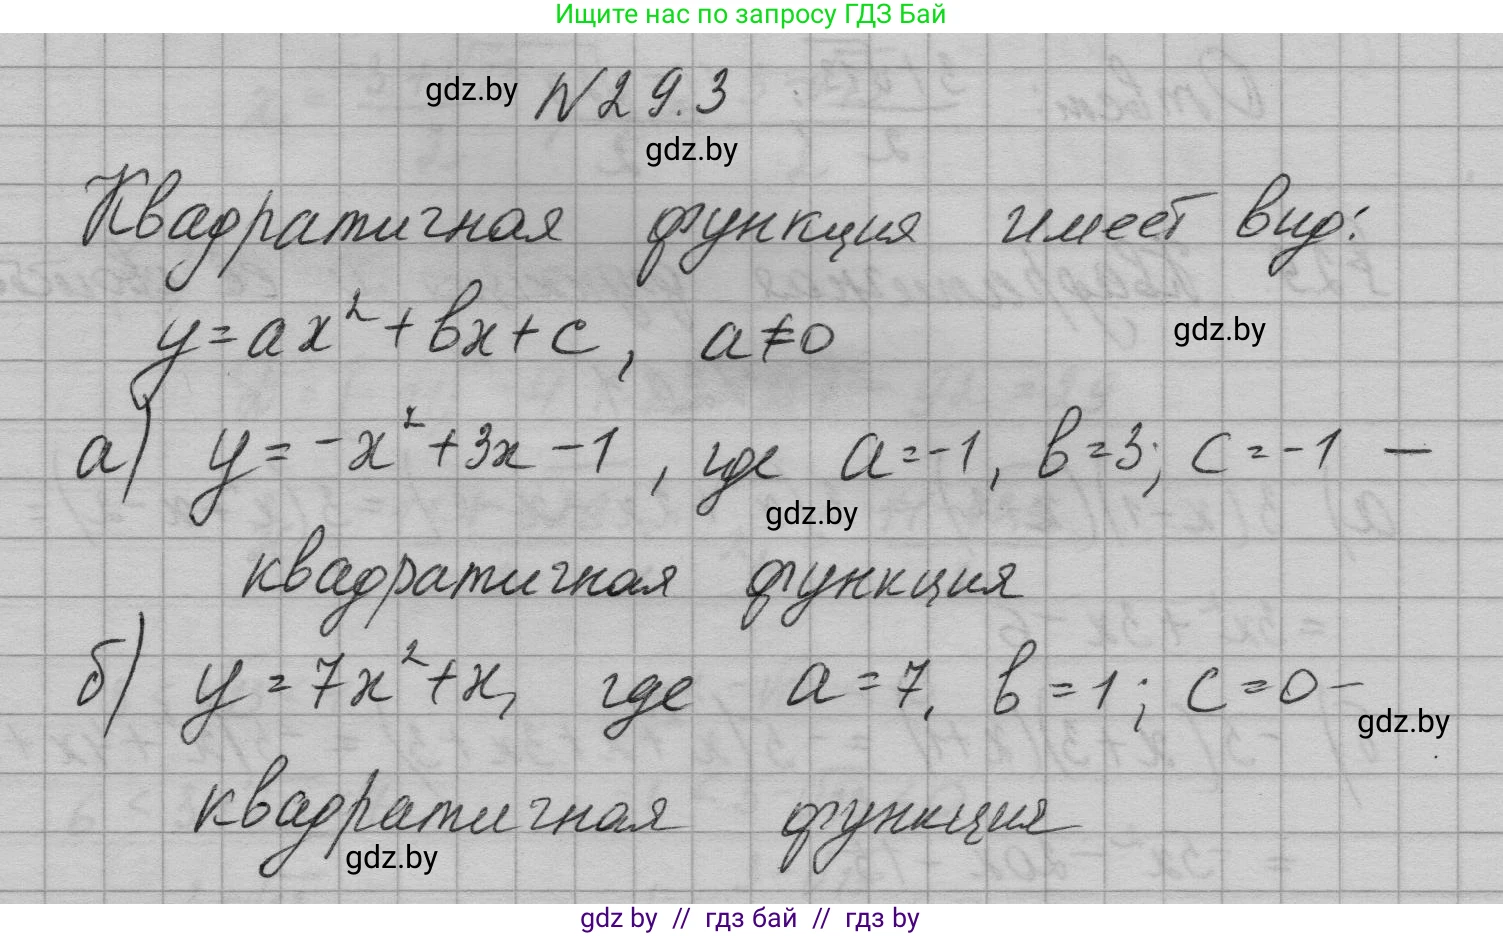 Ищите нас по запросу ГДЗ Бай
gdz.by №29.3
gdz.by
Квадратичная функция имеет вид:
y=ax²+bx+c, a≠0 gdz.by
а) y=-x²+3x-1, где a=-1, b=3; c=-1 —
gdz.by
квадратичная функция
б) y=7x²+x, где a=7, b=1; c=0 —
gdz.by
квадратичная функция
gdz.by
gdz by // гдз бай // гдз by